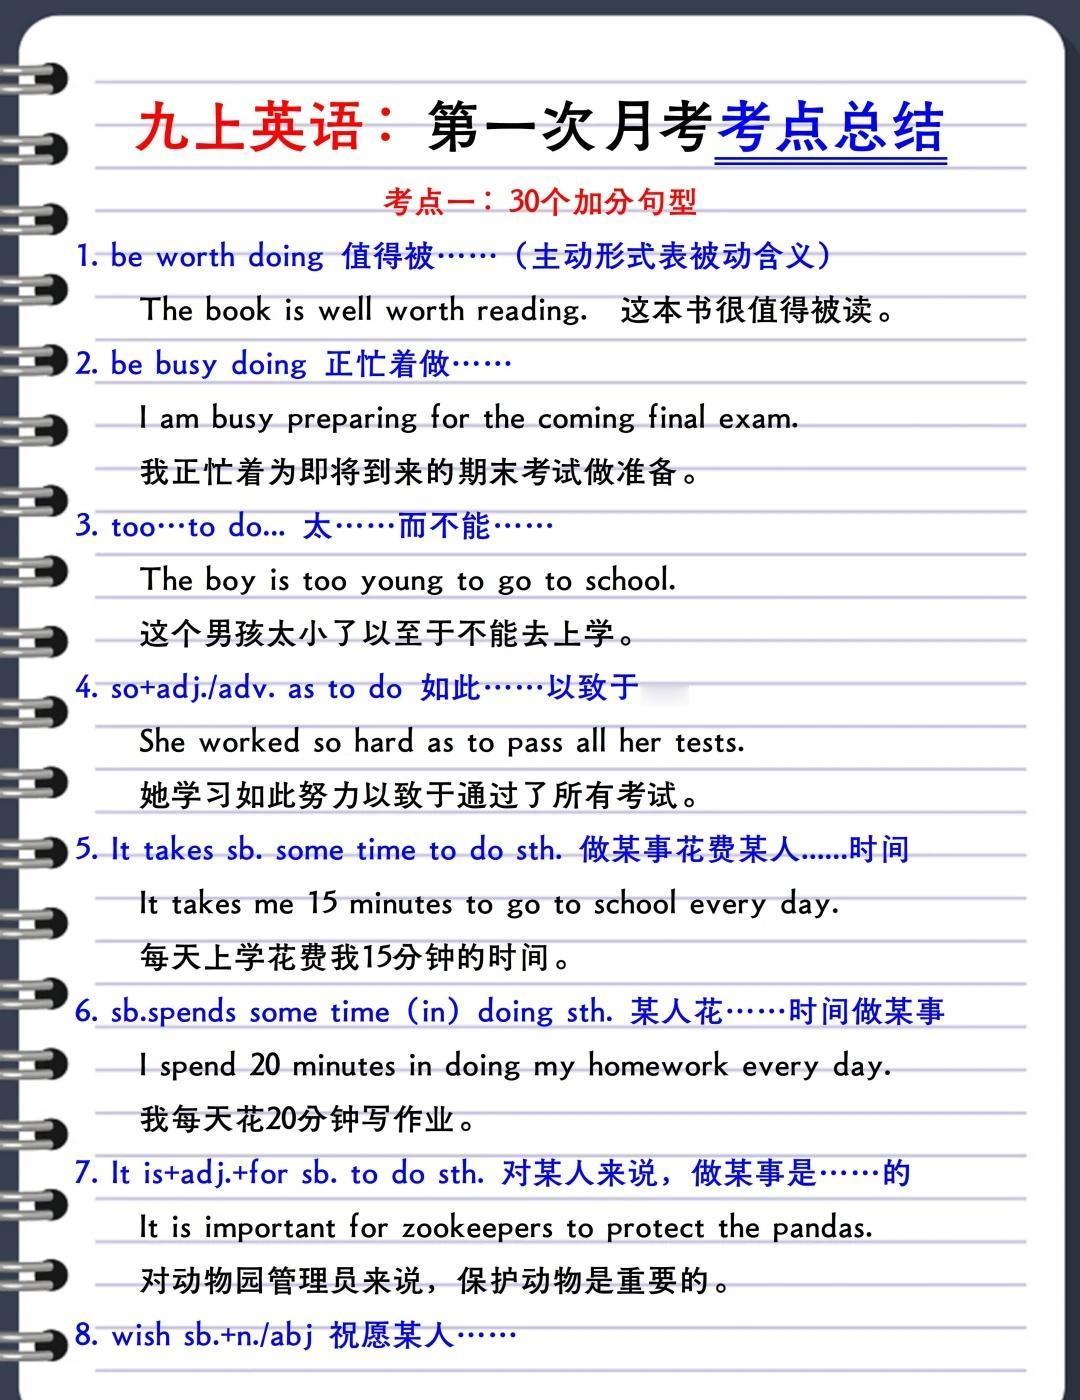 九上英语：第一次月考考点总结
考点一：30个加分句型
1. be worth doing 值得被……（主动形式表被动含义）
The book is well worth reading. 这本书很值得被读。
2. be busy doing 正忙着做……
I am busy preparing for the coming final exam.
我正忙着为即将到来的期末考试做准备。
3. too…to do... 太……而不能……
The boy is too young to go to school.
这个男孩太小了以至于不能去上学。
4. so+adj./adv. as to do 如此……以致于
She worked so hard as to pass all her tests.
她学习如此努力以致于通过了所有考试。
5. It takes sb. some time to do sth. 做某事花费某人......时间
It takes me 15 minutes to go to school every day.
每天上学花费我15分钟的时间。
6. sb.spends some time（in）doing sth. 某人花……时间做某事
I spend 20 minutes in doing my homework every day.
我每天花20分钟写作业。
7. It is+adj.+for sb. to do sth. 对某人来说，做某事是……的
It is important for zookeepers to protect the pandas.
对动物园管理员来说，保护动物是重要的。
8. wish sb.+n./abj 祝愿某人……